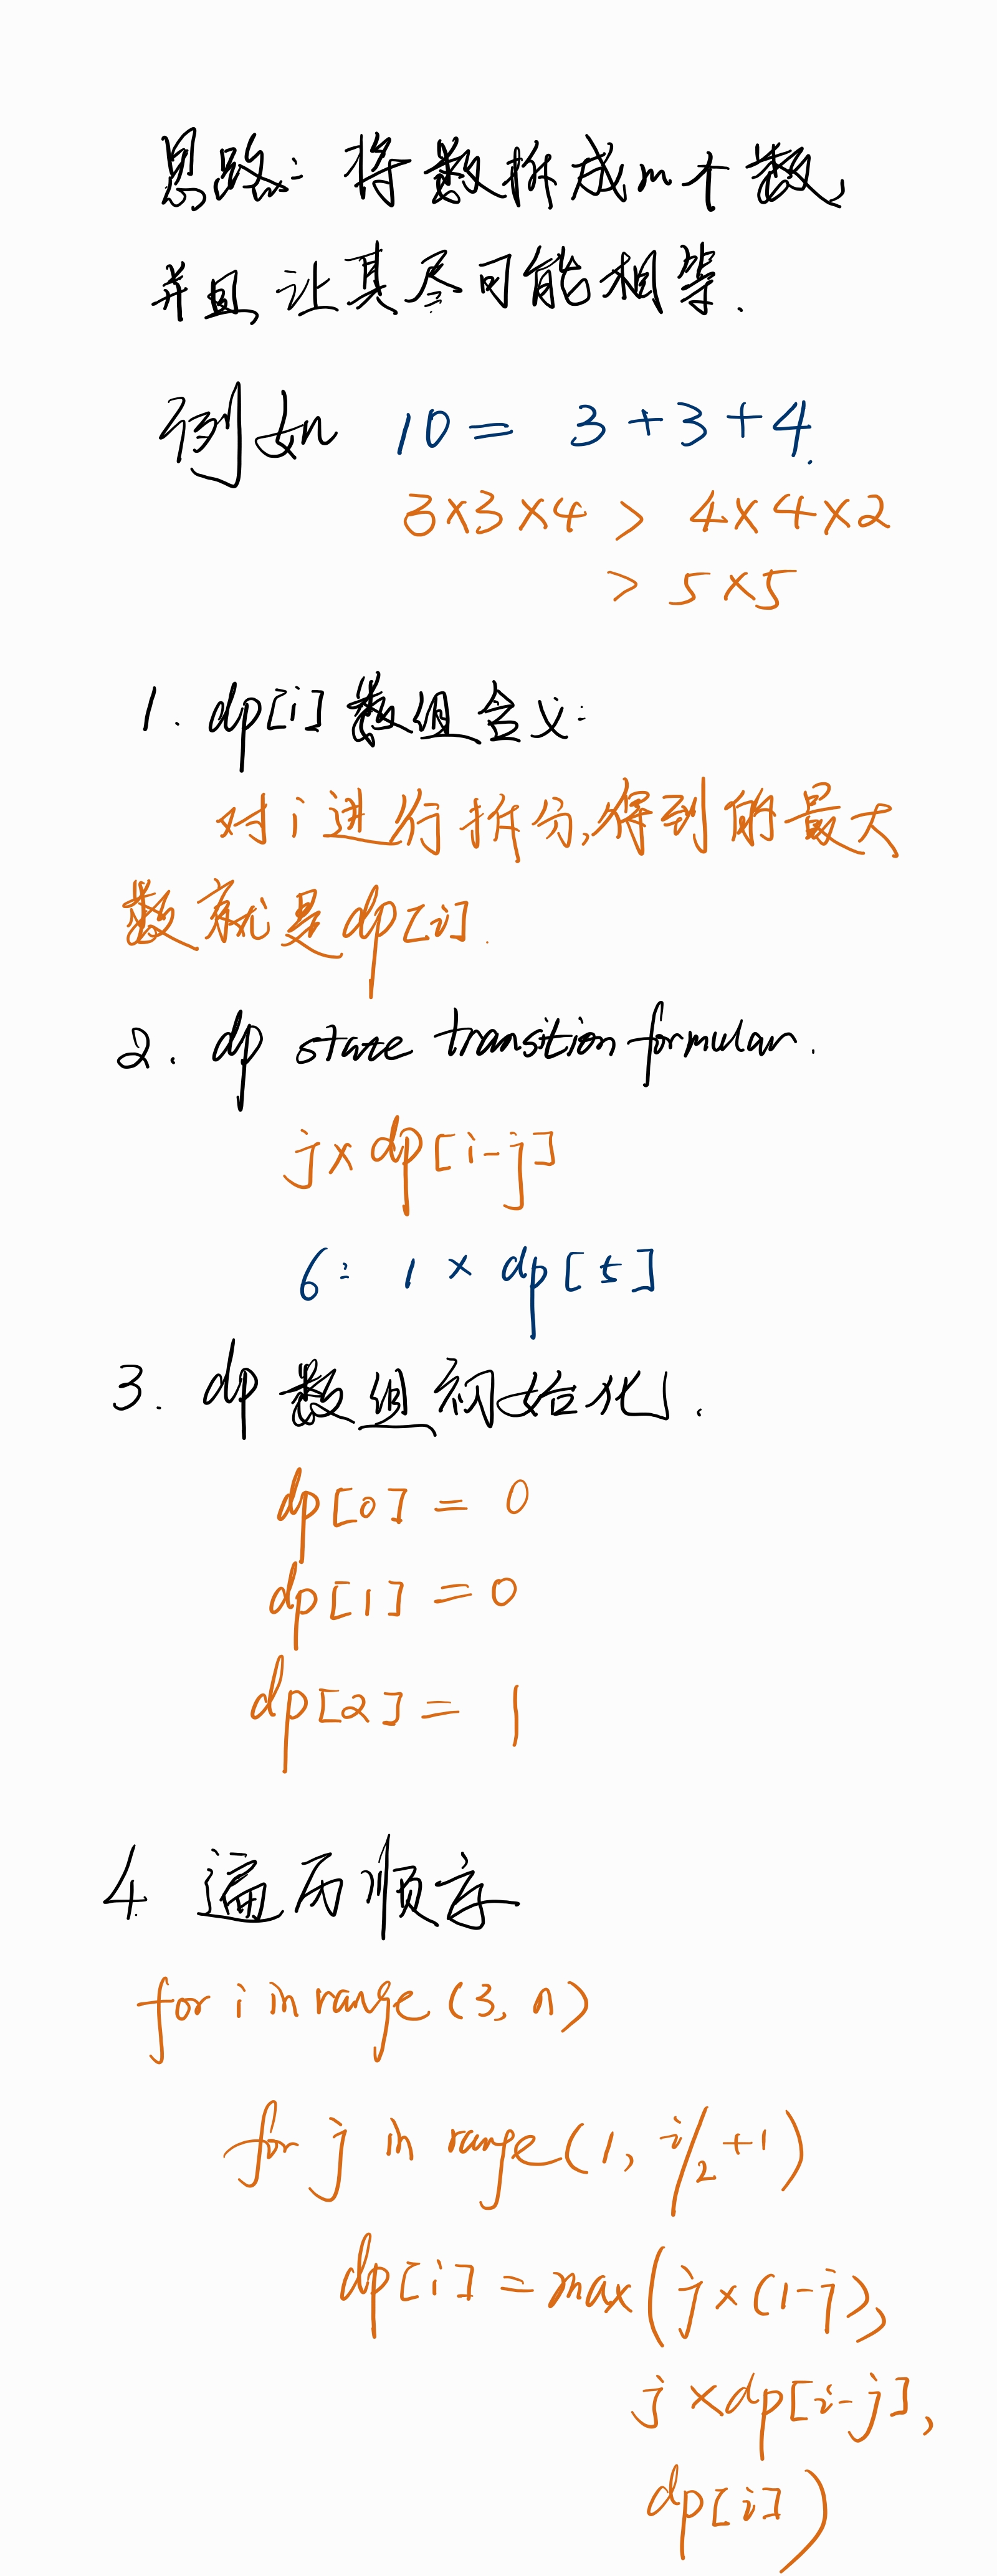 思路: 将数拆成m个数,
并且让其尽可能相等.
例如 10 = 3+3+4.
3×3×4 > 4×4×2
> 5×5
1. dp[i] 数组含义:
对i进行拆分,得到的最大
数就是dp[i].
2. dp state transition formular.
j× dp[i-j]
6: 1 × dp[5]
3. dp 数组初始化.
dp[0] = 0
dp[1] = 0
dp[2] = 1
4. 遍历顺序
for i in range (3, n)
for j in range(1, i/2 +1)
dp[i] = max(j×(1-j),
j ×dp[i-j],
dp[i])